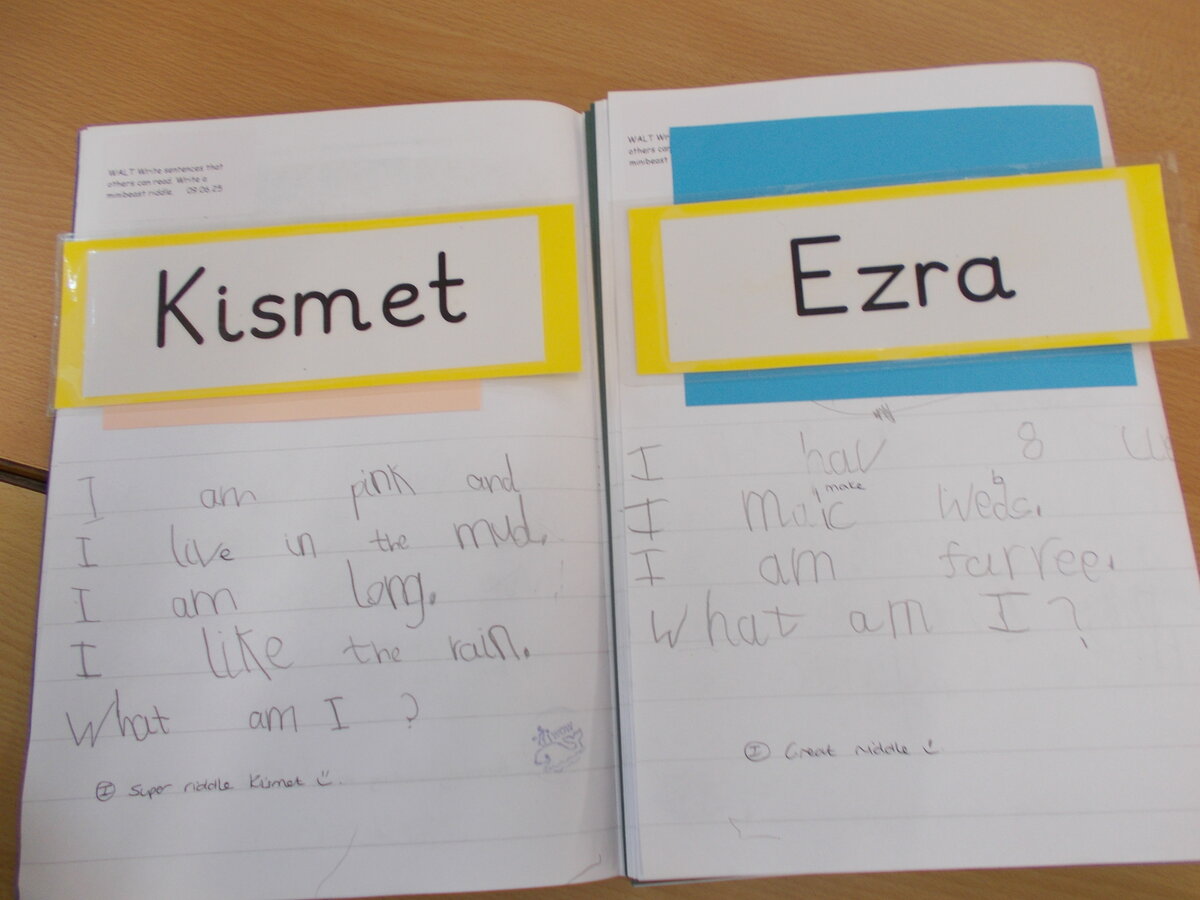 WALT Write sentences that
others can read. Write a
minibeast riddle. 09.06.25
Kismet
I am pink and
I live in the mud.
I am long.
I like the rain.
What am I ?
I Super riddle Kismet
wow
WALT Wr
others can
minibeast
Ezra
I hav 8
make
b
I maic Weds.
I am farree.
What am I ?
I Great riddle